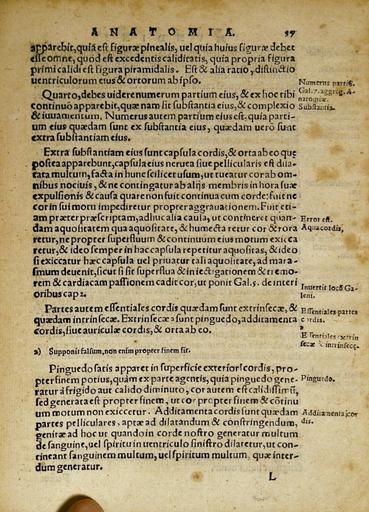 ANATOMIA.
57
apparebit, quia est figuræ pinealis, uel quia huius figuræ debet
esse omne, quod est excedentis caliditatis, quia propria figura
primi calidi est figura piramidalis. Est & alia ratio, distinctio
uentriculorum eius & ortorum ab ipso.
Quarto, debes uidere numerum partium eius, & ex hoc tibi
continuò apparebit, quæ nam sit substantia eius, & complexio
& iuuamentum. Numerus autem partium eius est. quia partium
eius quædam sunt ex substantia eius, quædam uerò sunt
extra substantiam eius.
Numerus partiũ.
Gal. 7. aggreg. A-
natomiæ.
Substantia.
Extra substantiam eius sunt capsula cordis, & orta ab eo quę
postea apparebunt, capsula eius neruea siue pellicularis est dila
tata multum, facta in hunc scilicet usum, ut tueatur cor ab om
nibus nociuis, & ne contingatur ab alijs membris in hora suæ
expulsionis & causa quare non fuit continua cum corde: fuit ne
cor in sui motu impediretur propter aggrauationem. Fuit eti-
am præter præscriptam, adhuc alia causa, ut contineret quan-
dam aquositatem qua aquositate, & humecta retur cor & rora
retur, ne propter superfluum & continuum eius motum exicca
retur, & ideo semper in hac capsula repetitur aquositas, & ideo
si exiccatur hæc capsula uel priuatur tali aquositate, ad mara-
smum deuenit, sicut si sit superflua &
rem & cardiacam passionem cadit cor, ut ponit Gal. 5. de interi
oribus cap 2.
Error est.
Aqua cordis,
Inuertit locũ Ga-
leni.
Partes autem essentiales cordis quædam sunt extrinsecæ, &
quædam intrinsecæ. Extrinsecæ sunt pinguedo, additamenta
cordis, siue auriculæ cordis, & orta ab eo.
Essentiales partes
cordis.
a
Essentiales extrin
secæ & intrinsecę.
a) Supponit falsum, non enim propter finem sit.
Pinguedo satis apparet in superficie exteriori cordis, pro-
pter finem potius, quàm ex parte agentis, quia pinguedo gene-
ratur à frigido aut calido diminuto, cor autem est calidissimũ,
sed generata est propter finem, ut cor propter finem & cõtinũ
um motum non exiccetur. Additamenta cordis sunt quædam
partes pelliculares, aptæ ad dilatandum & constringendum,
genitæ ad hoc ut quando in corde nostro generatur multum
de sanguine, uel spiritu in uentriculo sinistro dilaretur, ut con-
tineant sanguinem multum, uel spiritum multum, quæ inter-
dum generatur.
Pinguedo.
Additamenta cor
dis.
L